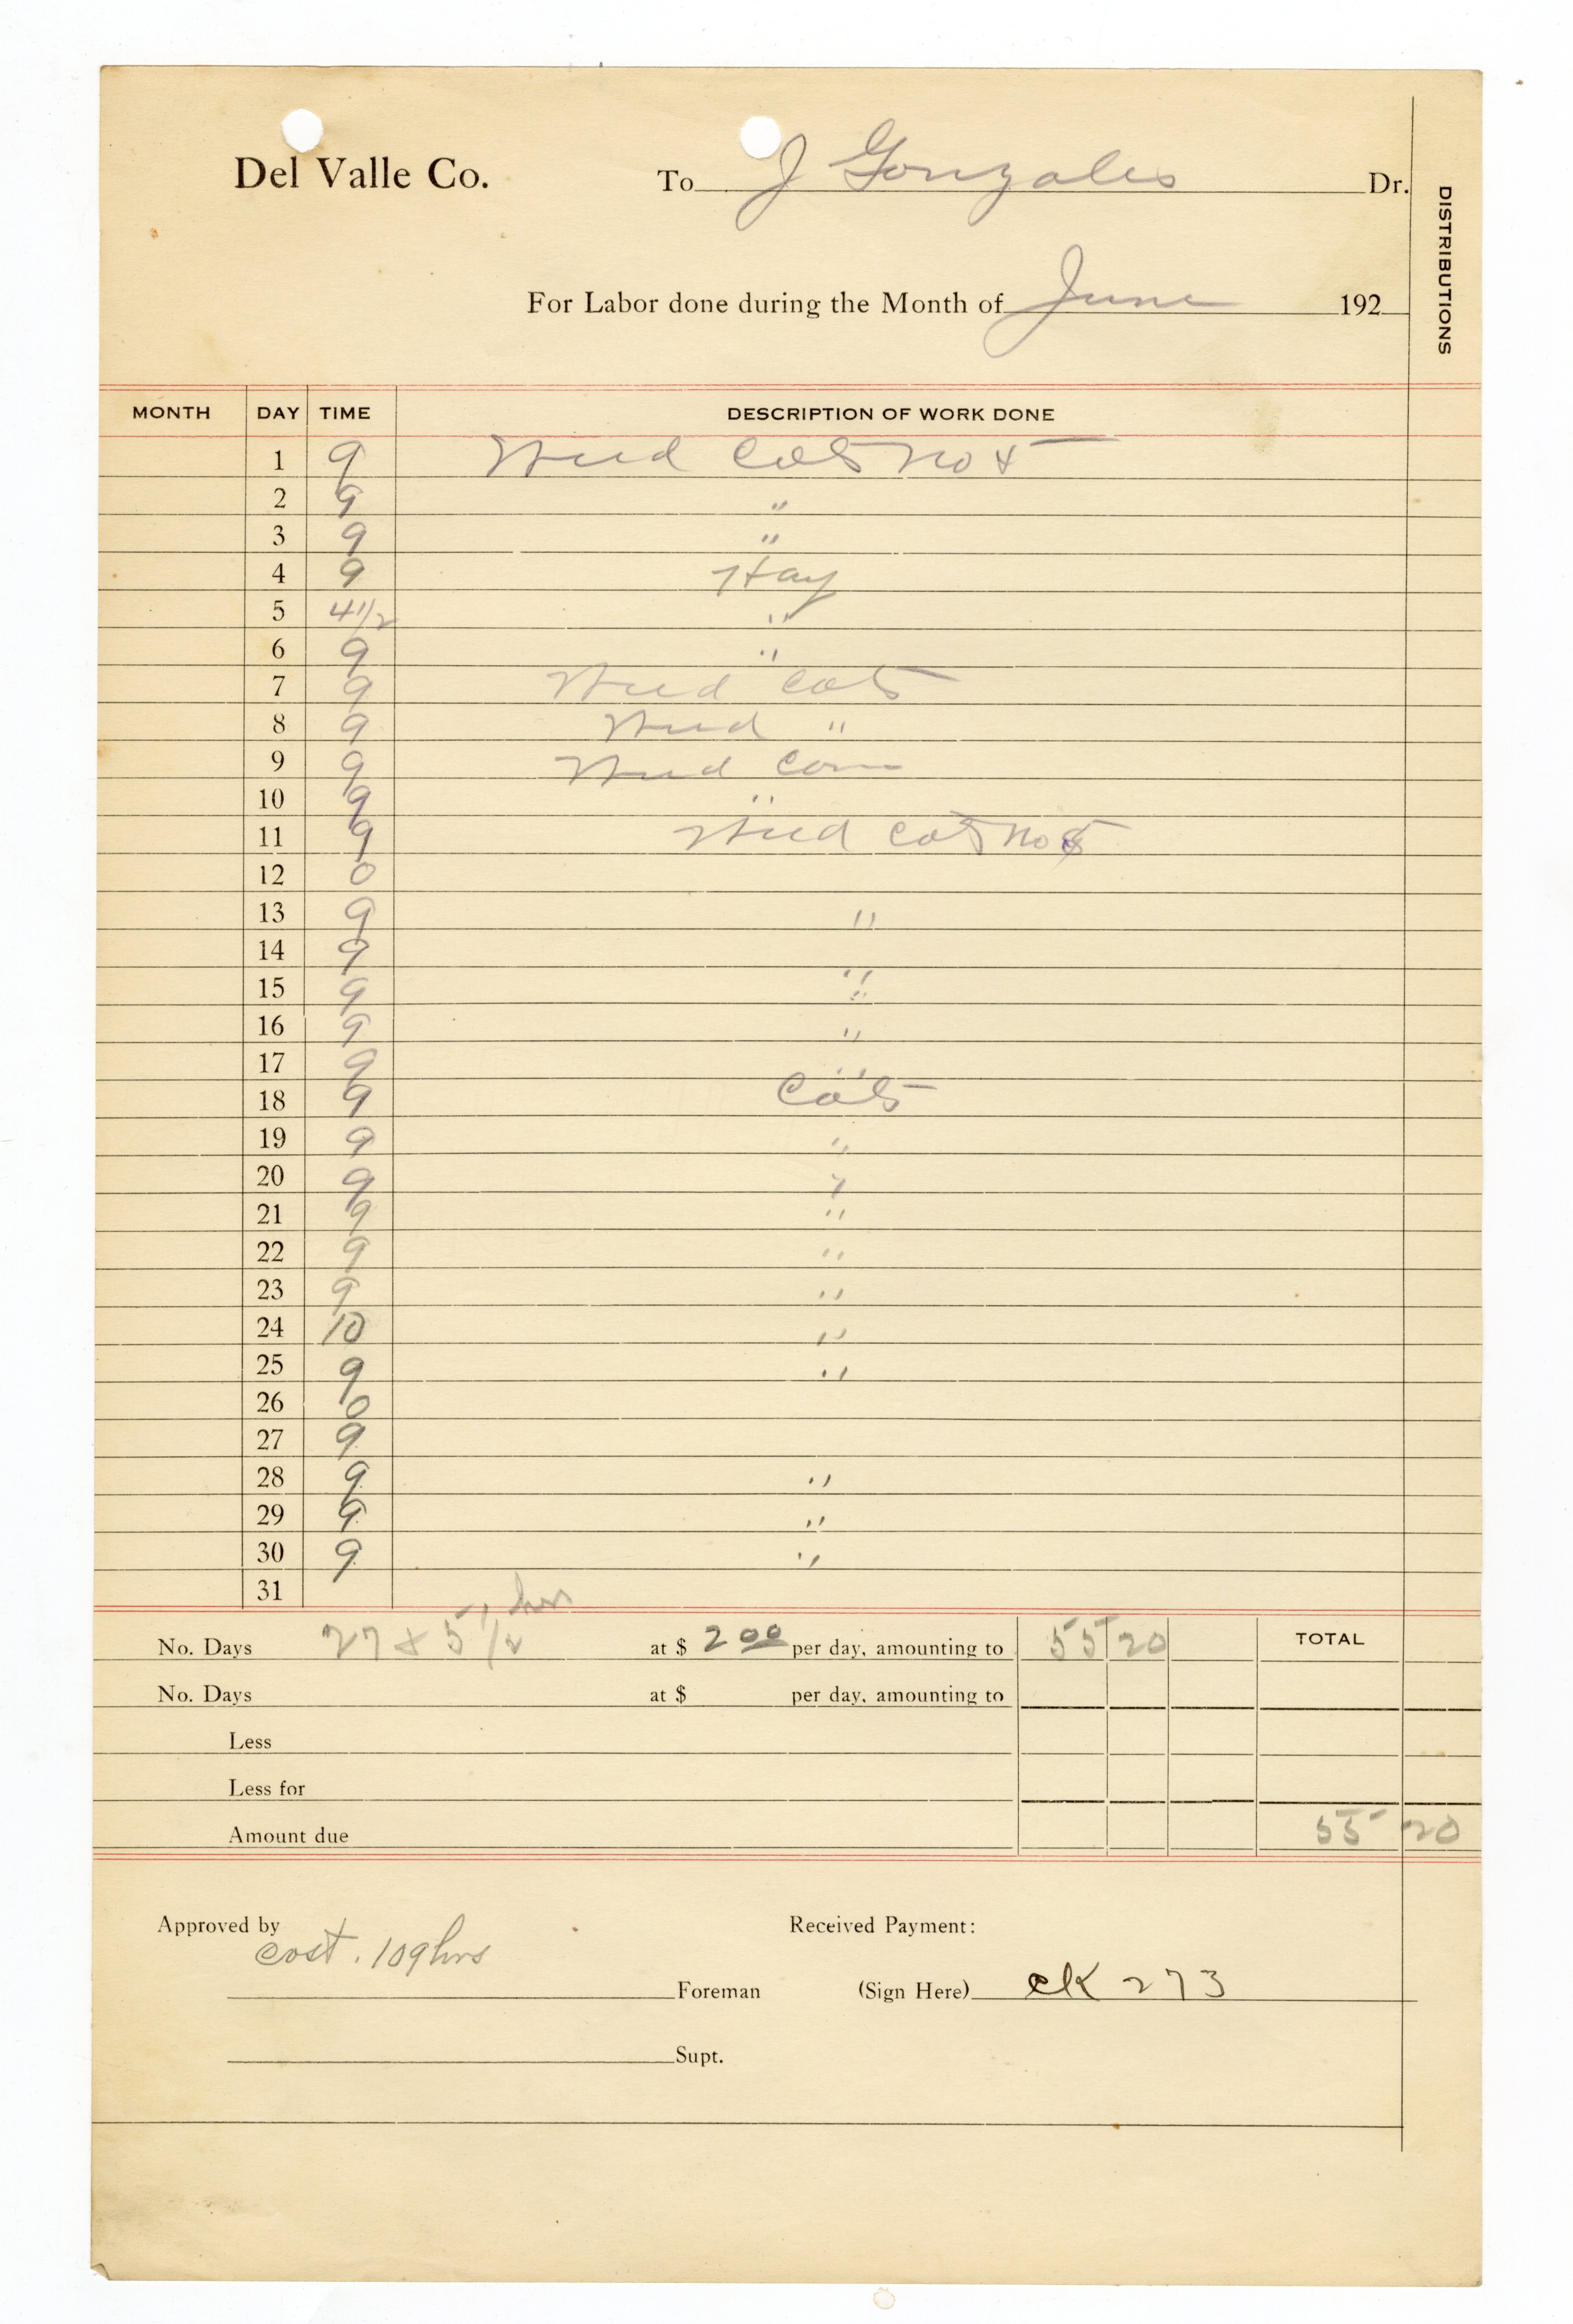 Del Valle Co. To J Gonzales Dr.
DISTRIBUTIONS
For Labor done during the Month of June 192
MONTH DAY TIME DESCRIPTION OF WORK DONE
1 9 Weed Cots No 5
2 9 "
3 9 "
4 9 Hay
5 4 1/2 "
6 9 "
7 9 Weed Cots
8 9 Weed "
9 9 Weed Corn
10 9 "
11 9 Weed Cots No
12 0
13 9 "
14 9 "
15 9 "
16 9 "
17 9 "
18 9 Cots
19 9 "
20 9 "
21 9 "
22 9 "
23 9 "
24 10 "
25 9 "
26 0
27 9
28 9 "
29 9 "
30 9 "
31
No. Days 27 & 5 1/2 hrs at $ 2 00 per day, amounting to 55 20 TOTAL
No. Days at $ per day, amounting to
Less
Less for
Amount due 55 20
Approved by Received Payment:
cost. 109 hrs
Foreman (Sign Here) ck 273
Supt.